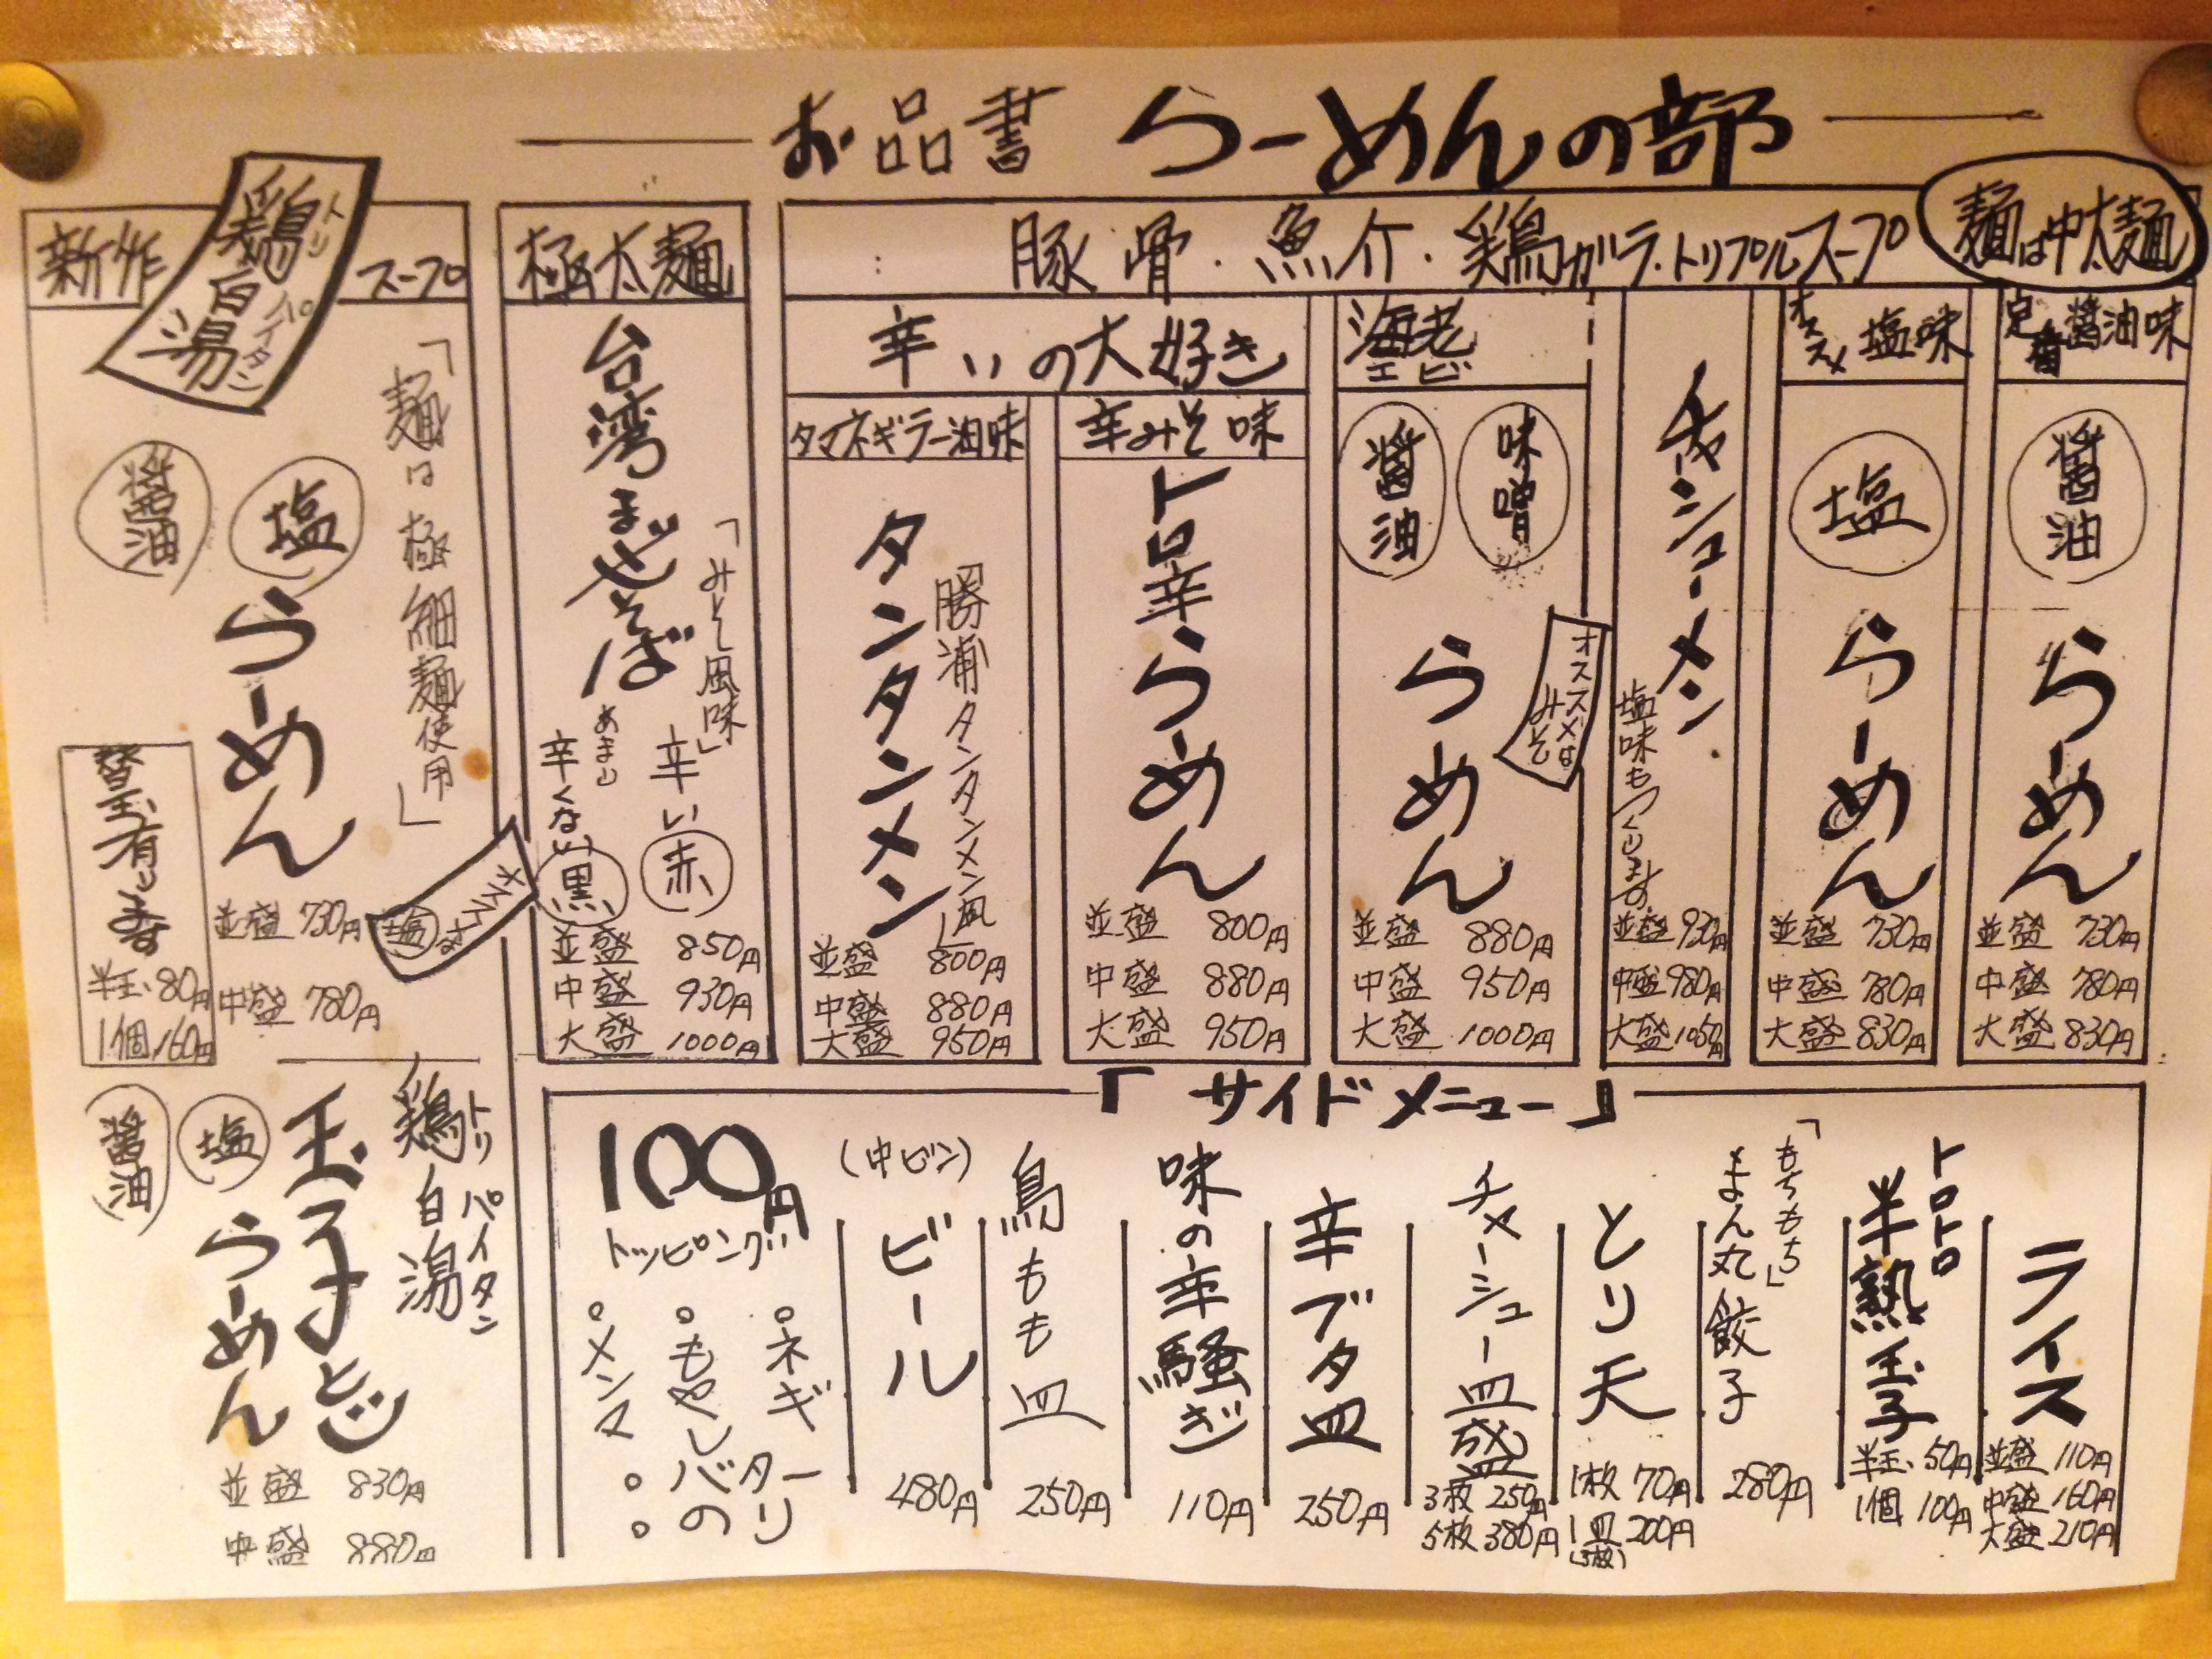 お品書 らーめんの部
麺は中太麺
豚骨・魚介・鶏ガラ・トリプルスープ
定番 醤油味
醤油
らーめん
並盛 730円
中盛 780円
大盛 830円
オススメ 塩味
塩
らーめん
並盛 730円
中盛 780円
大盛 830円
チャーシューメン
塩味もつくります
並盛 930円
中盛 980円
大盛 1050円
海老
エビ
味噌
醤油
らーめん
オススメは
みそ
並盛 880円
中盛 950円
大盛 1000円
辛いの大好き
辛みそ味
トロ辛らーめん
並盛 800円
中盛 880円
大盛 950円
タマネギラー油味
勝浦タンタンメン風
タンタンメン
並盛 800円
中盛 880円
大盛 950円
極太麺
台湾まぜそば
「みそ風味」
辛い 赤
あまり
辛くない 黒
並盛 850円
中盛 930円
大盛 1000円
新作 鶏白湯 スープ
トリ パイタン
「麺は極細麺使用」
塩
醤油
らーめん
オススメは塩
並盛 730円
中盛 780円
替玉有ります
半玉 80円
1個 160円
鶏白湯
トリ パイタン
玉子とじ
塩
醤油
らーめん
並盛 830円
中盛 880円
「サイドメニュー」
ライス
並盛 110円
中盛 160円
大盛 210円
トロトロ
半熟玉子
半玉 50円
1個 100円
「もちもち」
まん丸餃子
280円
とり天
1枚 70円
1皿 200円
(3枚)
チャーシュー皿盛
3枚 250円
5枚 380円
辛ブタ皿
250円
味の辛騒ぎ
110円
鳥もも皿
250円
(中ビン)
ビール
480円
100円
トッピング
。ネギ
。もやし
。メンマ
。バター
。のり